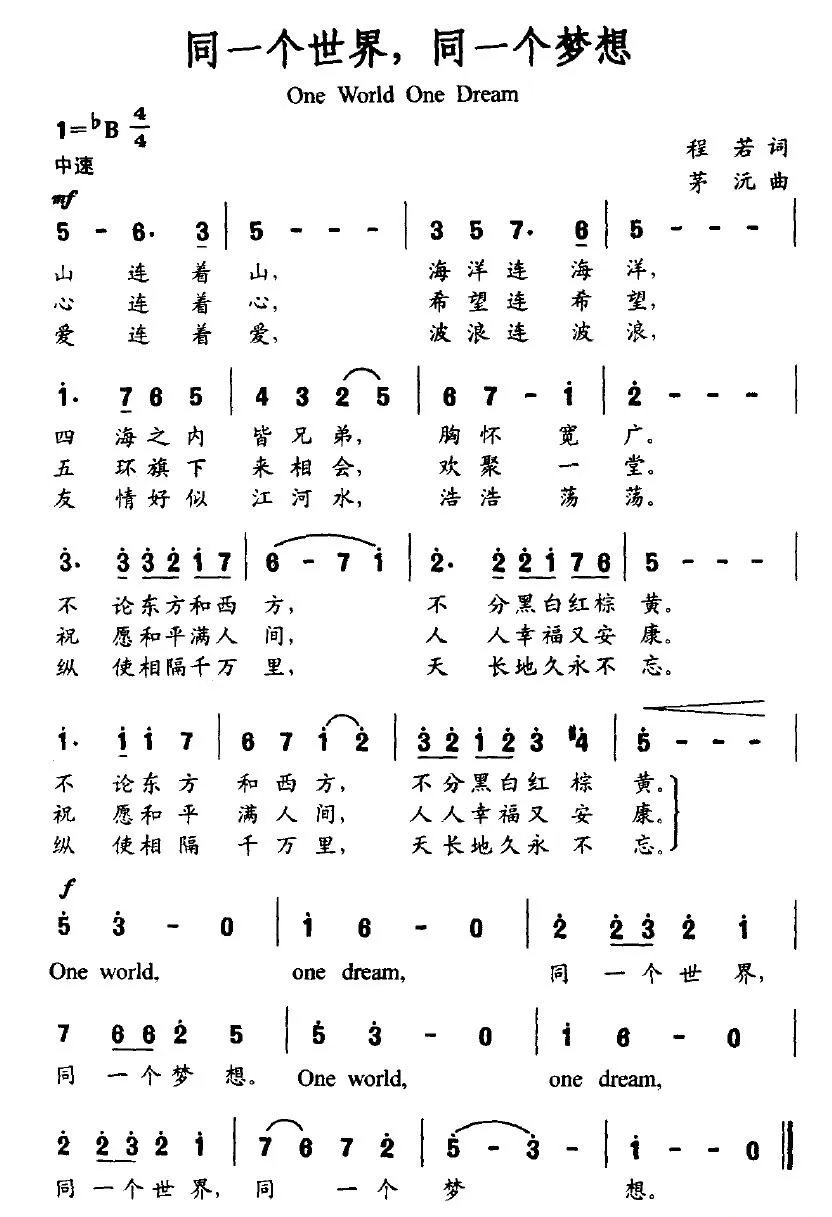 同一个世界，同一个梦想
One World One Dream
1=♭B 4/4
中速
程 若 词
茅 沅 曲
mf
5 - 6. 3 | 5 - - - | 3 5 7. 6 | 5 - - - |
山 连 着 山， 海 洋 连 海 洋，
心 连 着 心， 希 望 连 希 望，
爱 连 着 爱， 波 浪 连 波 浪，
1̇. 7 6 5 | 4 3 2 5 | 6 7 - 1̇ | 2̇ - - - |
四 海 之 内 皆 兄 弟， 胸 怀 宽 广。
五 环 旗 下 来 相 会， 欢 聚 一 堂。
友 情 好 似 江 河 水， 浩 浩 荡 荡。
3̇. 3̇ 3̇ 2̇ 1̇ 7 | 6 - 7 1̇ | 2̇. 2̇ 2̇ 1̇ 7 6 | 5 - - - |
不 论 东 方 和 西 方， 不 分 黑 白 红 棕 黄。
祝 愿 和 平 满 人 间， 人 人 幸 福 又 安 康。
纵 使 相 隔 千 万 里， 天 长 地 久 永 不 忘。
1̇. 1̇ 1̇ 7 | 6 7 1̇ 2̇ | 3̇ 2̇ 1̇ 2̇ 3̇ #4̇ | 5̇ - - - |
不 论 东 方 和 西 方， 不 分 黑 白 红 棕 黄。
祝 愿 和 平 满 人 间， 人 人 幸 福 又 安 康。
纵 使 相 隔 千 万 里， 天 长 地 久 永 不 忘。
f
5̇ 3̇ - 0 | 1̇ 6 - 0 | 2̇ 2̇ 3̇ 2̇ 1̇ |
One world, one dream, 同 一 个 世 界，
7 6 6 2̇ 5 | 5̇ 3̇ - 0 | 1̇ 6 - 0 |
同 一 个 梦 想。 One world, one dream,
2̇ 2̇ 3̇ 2̇ 1̇ | 7 6 7 2̇ | 5̇ - 3̇ - | 1̇ - - 0 ‖
同 一 个 世 界， 同 一 个 梦 想。